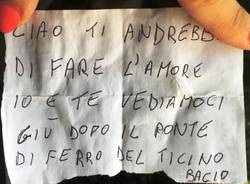 CIAO TI ANDREBB
DI FARE L'AMORE
IO E TE VEDIAMOCI
GIU DOPO IL PONTE
DI FERRO DEL TICINO
BACIO